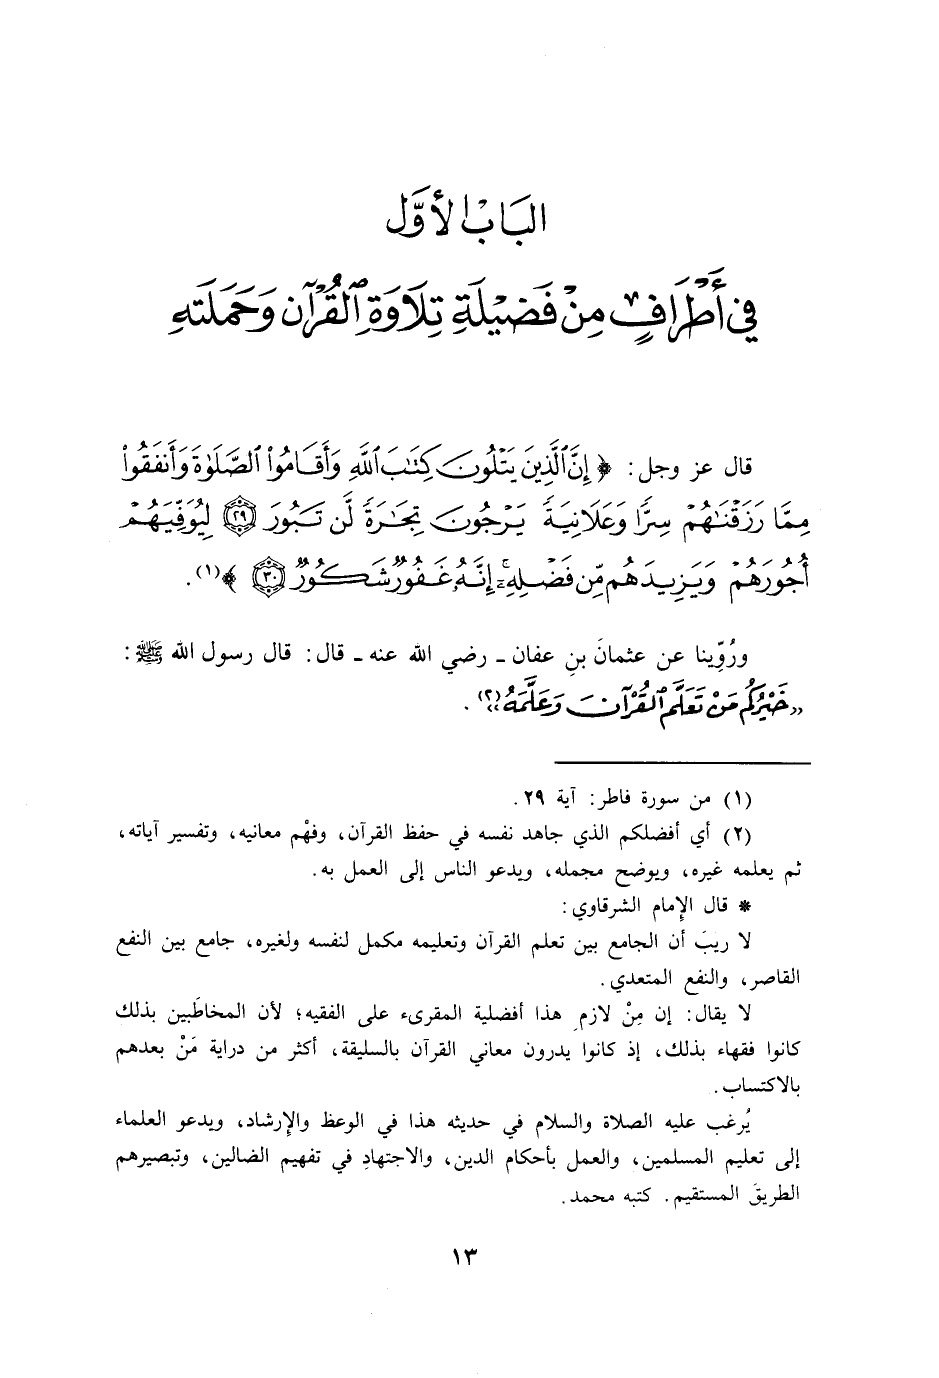 البَابُ الأَوَّل
في أَطْرَافٍ مِنْ فَضِيْلَةِ تِلَاوَةِ القُرْآن وَحَمَلَتِهِ
قال عز وجل: ﴿إِنَّ ٱلَّذِينَ يَتْلُونَ كِتَٰبَ ٱللَّهِ وَأَقَامُوا۟ ٱلصَّلَوٰةَ وَأَنفَقُوا۟
مِمَّا رَزَقْنَٰهُمْ سِرًّا وَعَلَانِيَةً يَرْجُونَ تِجَٰرَةً لَّن تَبُورَ ﴿٢٩﴾ لِيُوَفِّيَهُمْ
أُجُورَهُمْ وَيَزِيدَهُم مِّن فَضْلِهِۦٓ ۚ إِنَّهُۥ غَفُورٌ شَكُورٌ ﴿٣٠﴾ ﴾(١).
ورُوِّينا عن عثمانَ بنِ عفان ـ رضي الله عنه ـ قال: قال رسول الله ﷺ:
«خَيْرُكُم مَنْ تَعَلَّمَ ٱلقُرْآنَ وَعَلَّمَهُ»(٢).
(١) من سورة فاطر: آية ٢٩.
(٢) أي أفضلكم الذي جاهد نفسه في حفظ القرآن، وفهْم معانيه، وتفسير آياته،
ثم يعلمه غيره، ويوضح مجمله، ويدعو الناس إلى العمل به.
* قال الإمام الشرقاوي:
لا ريبَ أن الجامع بين تعلم القرآن وتعليمه مكمل لنفسه ولغيره، جامع بين النفع
القاصر، والنفع المتعدي.
لا يقال: إن مِنْ لازمِ هذا أفضلية المقرىء على الفقيه؛ لأن المخاطَبين بذلك
كانوا فقهاء بذلك، إذ كانوا يدرون معاني القرآن بالسليقة، أكثر من دراية مَنْ بعدهم
بالاكتساب.
يُرغب عليه الصلاة والسلام في حديثه هذا في الوعظ والإرشاد، ويدعو العلماء
إلى تعليم المسلمين، والعمل بأحكام الدين، والاجتهادِ في تفهيم الضالين، وتبصيرهم
الطريقَ المستقيم. كتبه محمد.
١٣